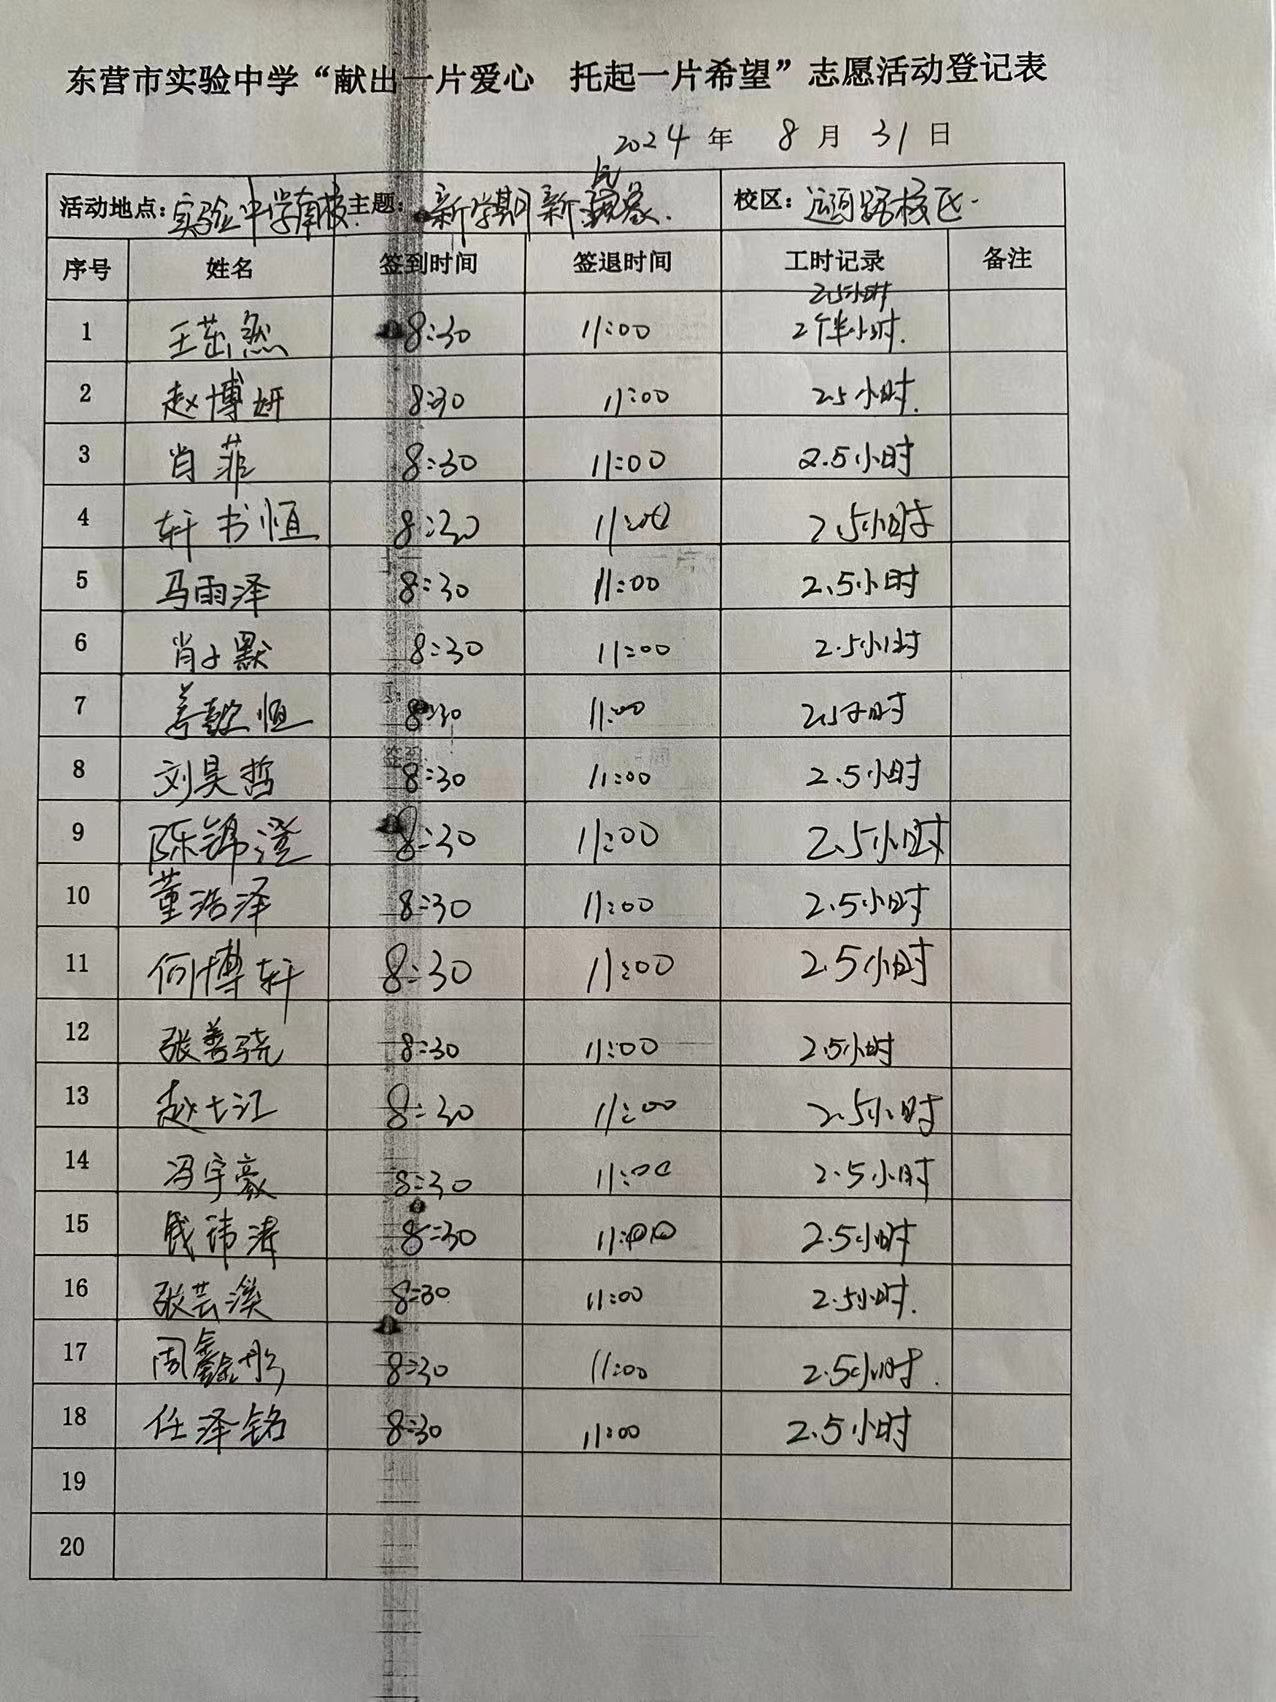 东营市实验中学“献出一片爱心 托起一片希望”志愿活动登记表
2024 年 8 月 31 日
活动地点：实验中学南校 主题： 新学期新气象. 校区：运河路校区.
序号 姓名 签到时间 签退时间 工时记录 备注
2.5小时
1 王茁然 8:30 11:00 2个半小时.
2 赵博妍 8:30 11:00 2.5小时.
3 肖菲 8:30 11:00 2.5小时
4 轩书恒 8:30 11:00 2.5小时
5 马雨泽 8:30 11:00 2.5小时
6 肖子默 8:30 11:00 2.5小时
7 恒 8:30 11:00 2.5小时
8 刘昊哲 8:30 11:00 2.5小时
9 陈锦澄 8:30 11:00 2.5小时
10 董浩泽 8:30 11:00 2.5小时
11 何博轩 8:30 11:00 2.5小时
12 张善骁 8:30 11:00 2.5小时
13 赵七江 8:30 11:00 2.5小时
14 冯宇豪 8:30 11:00 2.5小时
15 玮涛 8:30 11:00 2.5小时
16 张芸溪 8:30 11:00 2.5小时.
17 周鑫彤 8:30 11:00 2.5小时.
18 任泽铭 8:30 11:00 2.5小时
19
20